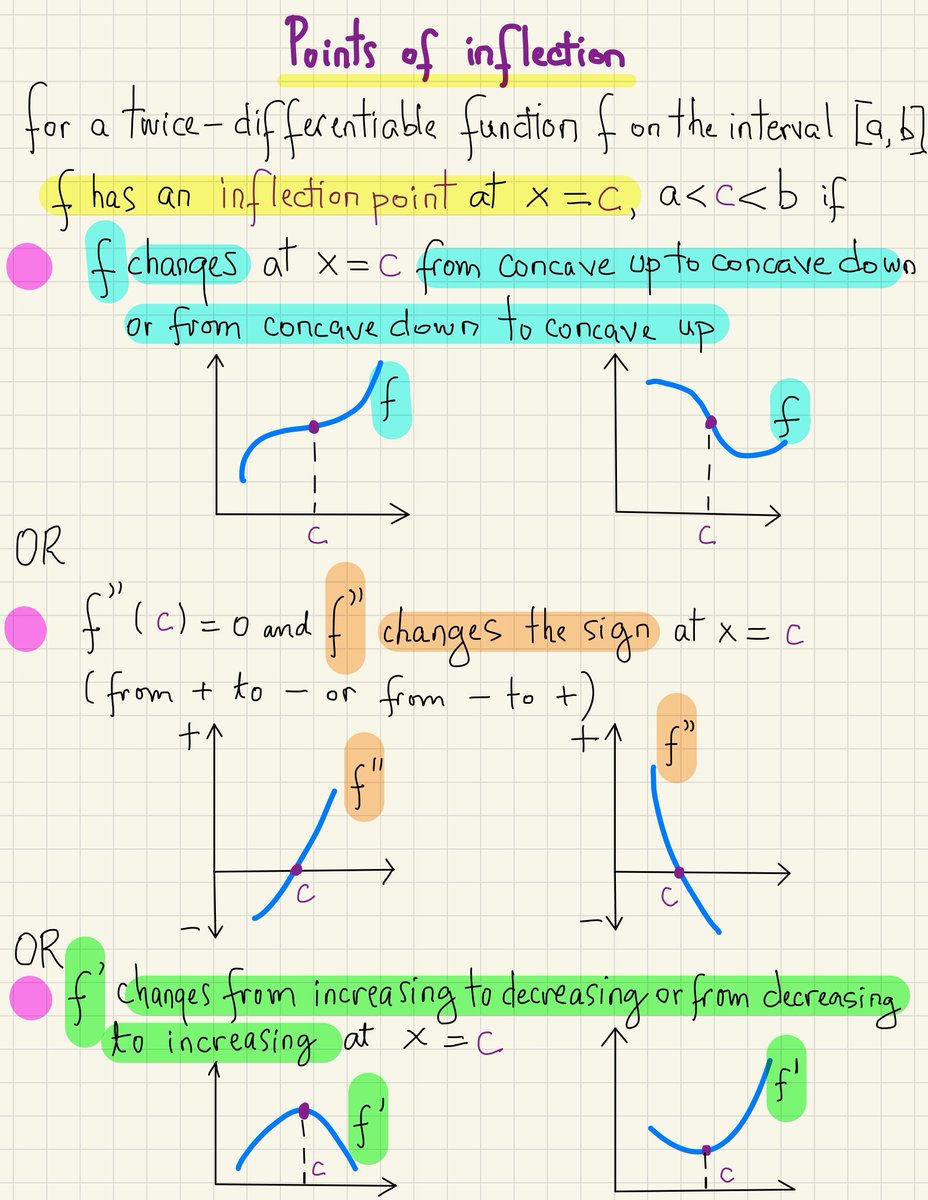 Points of inflection
for a twice-differentiable function f on the interval [a,b]
f has an inflection point at x=c, a<c<b if
f changes at x=c from concave up to concave down
or from concave down to concave up
f
f
c
c
OR
f''(c)=0 and f'' changes the sign at x=c
(from + to - or from - to +)
+
f''
+
f''
c
c
-
-
OR
f' changes from increasing to decreasing or from decreasing
to increasing at x=c
f'
f'
c
c